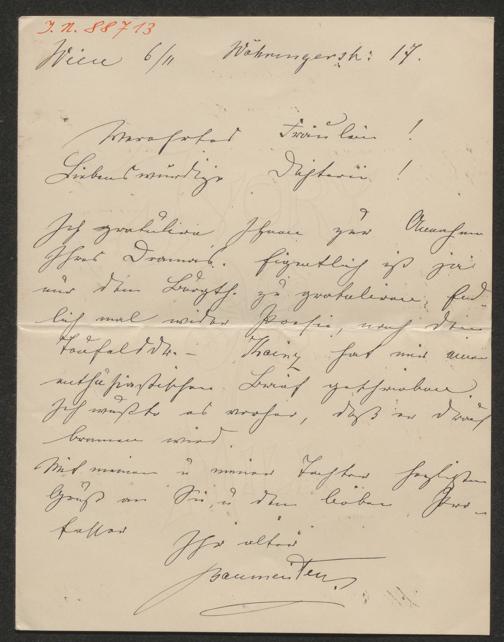 J. N. 88713
Wien 6/11 Währingerstr: 17.
Verehrtes Fräulein!
Liebenswürdige Dichterin!
Ich gratulire Ihnen zur Annahme
Ihres Dramas. Eigentlich ist ja
nur dem Burgth. zu gratuliren, End-
lich mal wieder Poesie, nach dem
Kainz hat mir einen
enthusiastischen Brief geschrieben
Ich wußte es vorher, daß er drauf
brennen wird.
Mit meinen u meiner Tochter herzlichsten
Gruß an Sie, u dem lieben Pro-
fessor
Ihr alter
Baumeister